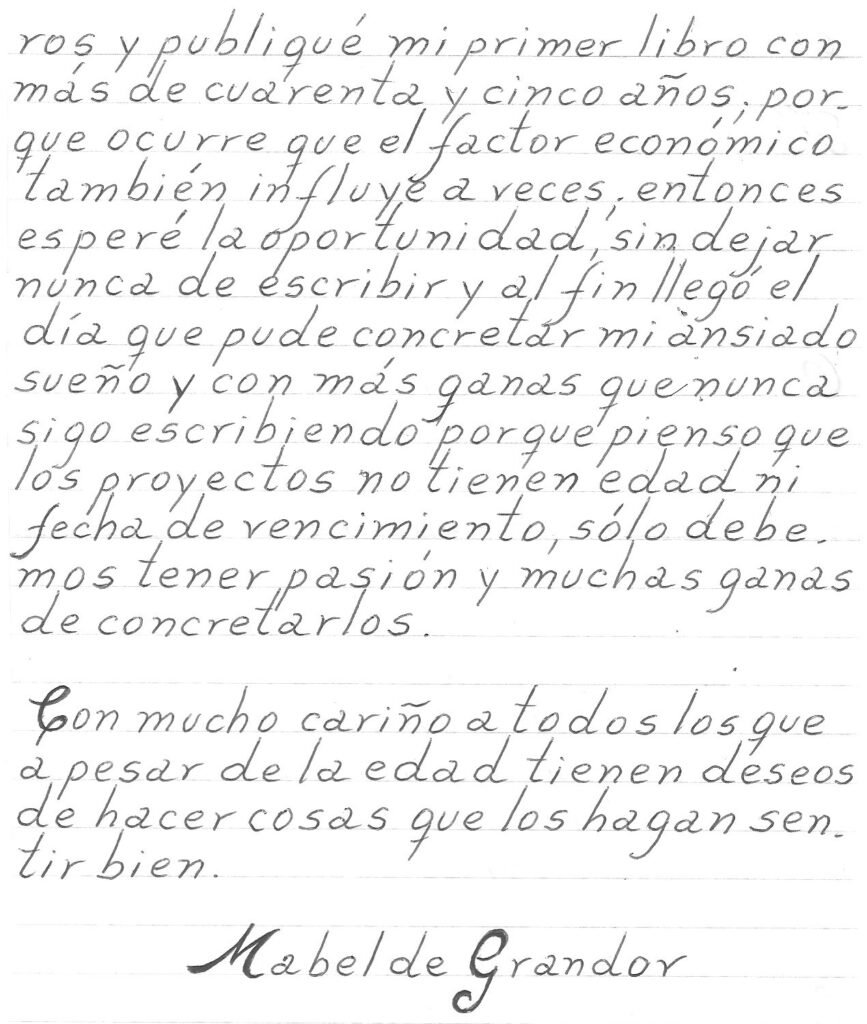 ros y publiqué mi primer libro con
más de cuarenta y cinco años; por-
que ocurre que el factor económico
también influye a veces; entonces
esperé la oportunidad, sin dejar
nunca de escribir y al fin llegó el
día que pude concretar mi ansiado
sueño y con más ganas que nunca
sigo escribiendo porque pienso que
los proyectos no tienen edad ni
fecha de vencimiento, sólo debe-
mos tener pasión y muchas ganas
de concretarlos.
Con mucho cariño a todos los que
a pesar de la edad tienen deseos
de hacer cosas que los hagan sen-
tir bien.
Mabel de Grandor